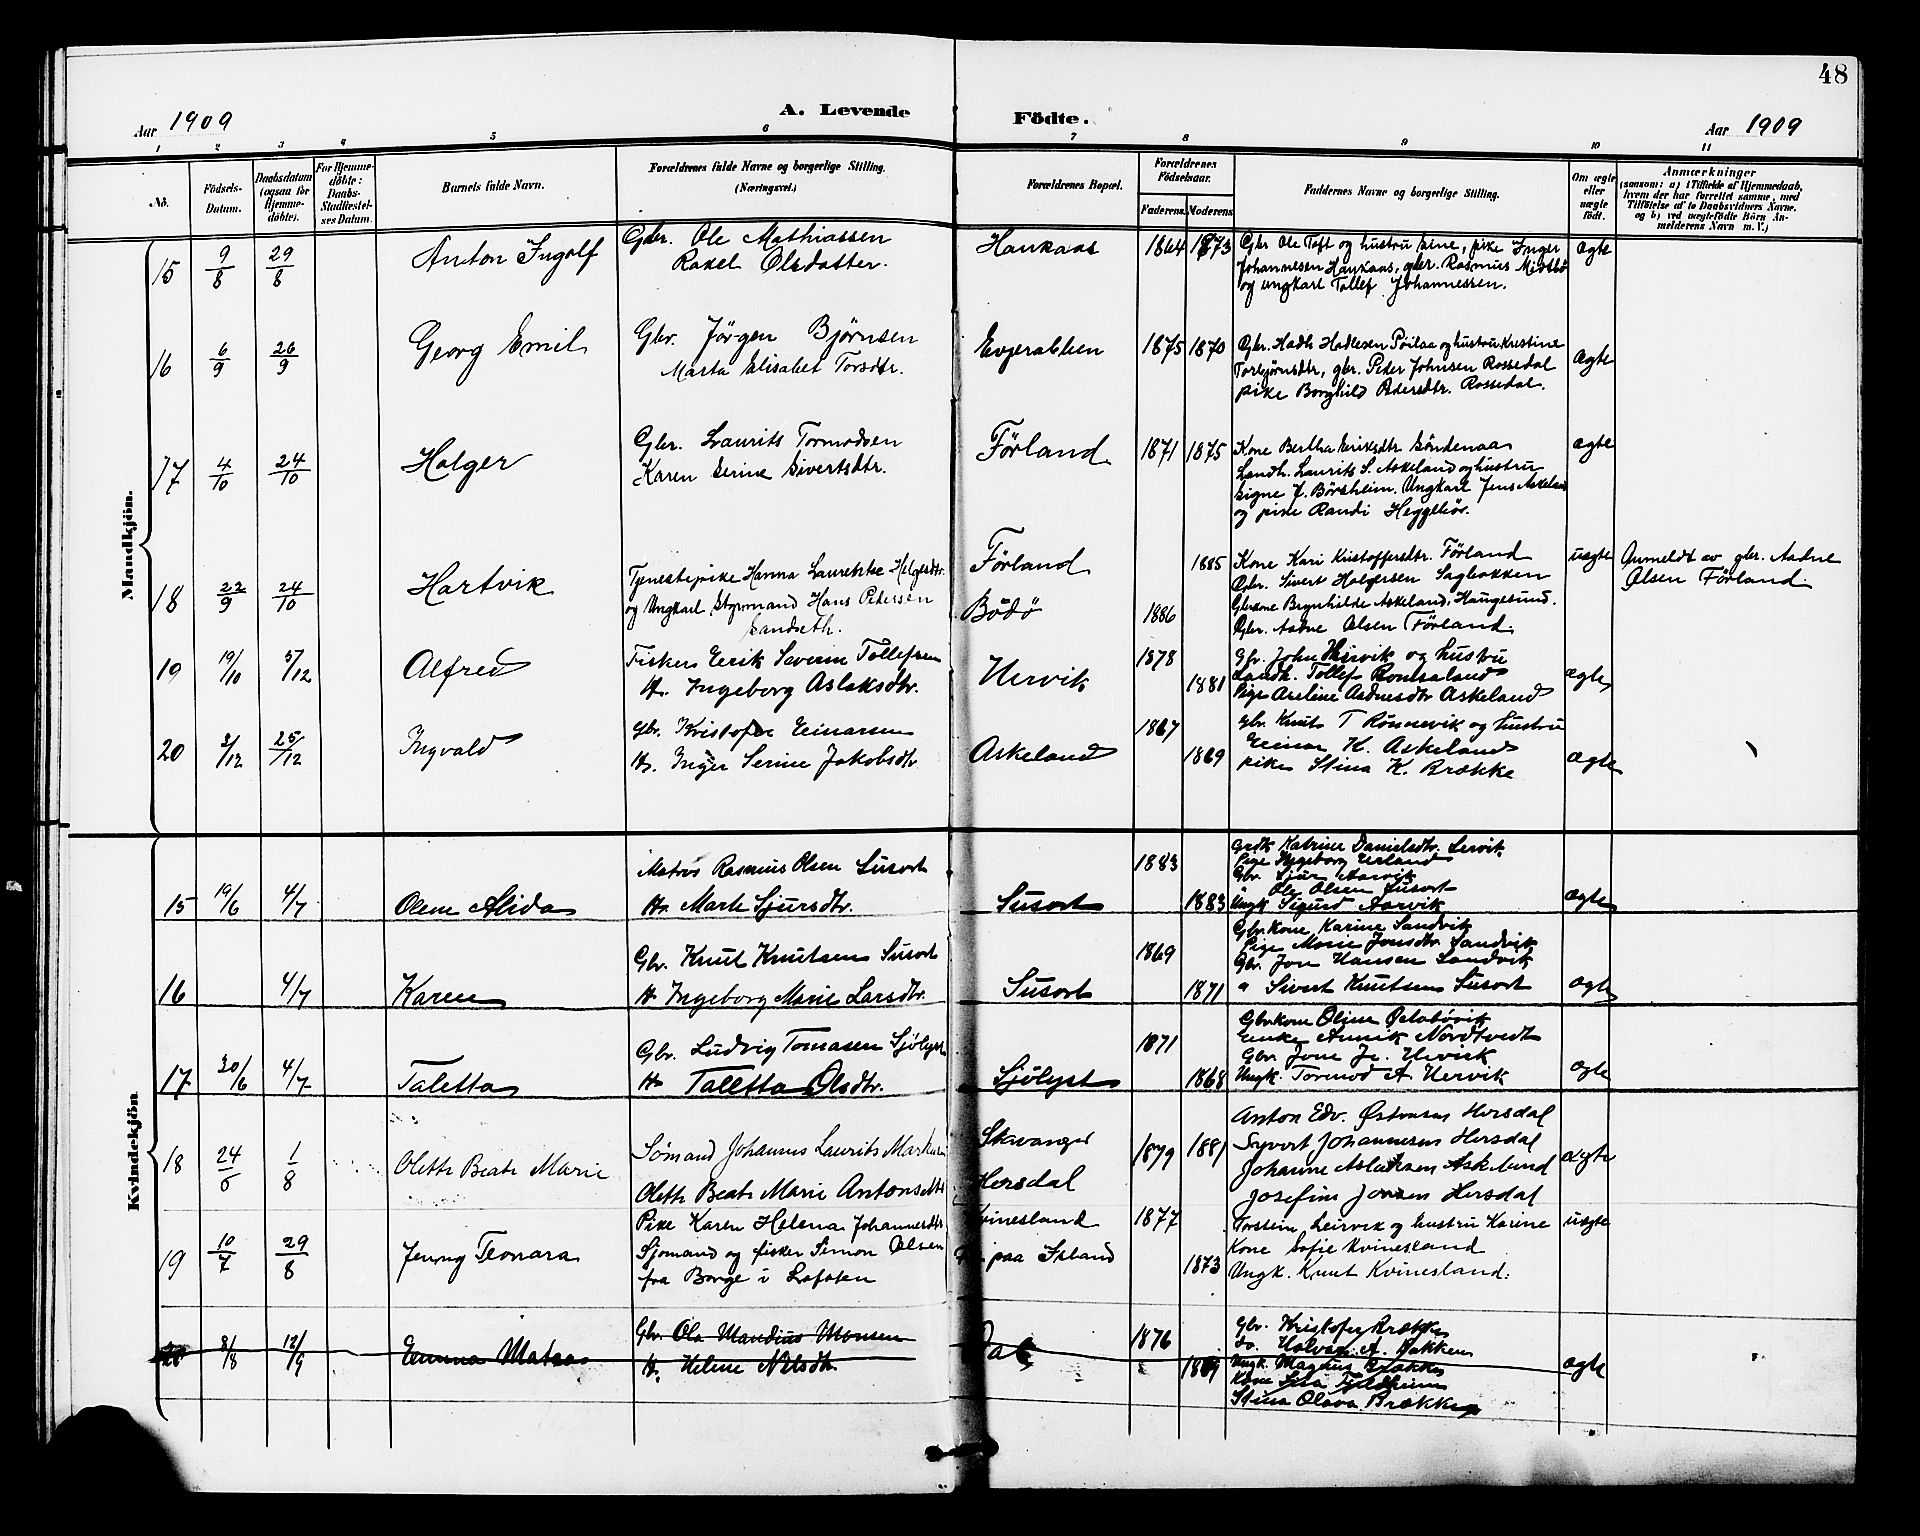 48
Aar 1909
A. Levende Födte.
Aar 1909
1 2 3 4 5 6 7 8 9 10 11
No.
Födsels-Datum.
Daabsdatum (ogsaa for Hjemme-döbte).
For Hjemme-döbte: Daabs-Stadfæstelses Datum.
Barnets fulde Navn.
Forældrenes fulde Navne og borgerlige Stilling. (Næringsvei.)
Forældrenes Bopæl.
Forældrenes Födselsaar.
Faderens. Moderens.
Faddernes Navne og borgerlige Stilling.
Om ægte eller uægte födt.
Anmærkninger
(saasom: a) i Tilfælde af Hjemmedaab,
hvem der har forrettet samme, med
Tilföielse af to Daabsvidners Navne.
og b) ved uægtefödte Börn An-
melderens Navn m. V.)
Mandkjön.
15 9/8 29/8 Anton Ingolf
Gbr. Ole Mathiassen
Rakel Olsdatter.
Haukaas 1864 1873
Gbr Ole Toft og hustru Sine, pike Inger
Johannesen Haukaas, gbr. Rasmus Midtbø
og ungkarl Tollef Johannessen.
ægte
16 6/9 26/9 Georg Emil
Gbr. Jörgen Bjørnsen
Marta Elisabet Torsdtr.
1875 1870
Peder Johnsen Rossedal
pike Borghild Pedersdtr. Rossedal.
ægte
17 4/10 24/10 Holger
Gbr. Laurits Tormodsen
Karen Serine Sivertsdtr.
Förland 1871 1875
Kone Bertha Eriksdtr Söndenaa
Landh. Laurits S. Askeland og hustru
Signe J. Börsheim. Ungkarl Jens
og pike Randi
ægte
18 22/9 24/10 Hartvik
Tjenestepike Hanna Laurentse Helgesdtr.
og Ungkarl Styrmand Hans Petersen
Sandseth.
Förland
Bödö
1886 1885
Kone Kari Kristoffersdtr. Förland
Gbr. Sivert Holgersen Sagbakken
Gbrkone Brynhilde Askeland, Haugesund.
Gbr. Aadne Olsen Förland.
uægte
Anmeldt av gbr. Aadne
Olsen Förland.
19 19/10 5/12 Alfred
Fisker Eerik Severin Tollefsen
H. Ingeborg Aslaksdtr.
Hervik 1878 1881
Gbr. John Hervik og hustru
Landh. Tollef Romsaland
Pige Aadnesdtr Askeland
ægte
20 3/12 25/12 Ingvald
Gbr. Kristofer Einarsen
H. Inger Serine Jakobsdtr.
Askeland 1867 1869
Gbr. Knut T Rönnevik og hustru
Einar K. Askeland
pike Stina K. Brække
ægte
Kvindekjön.
15 19/6 4/7 Olene Alida
Matros Rasmus Olsen Susort
H. Marte Sjursdtr.
Susort 1883 1883
Katrine Danielsdtr.
Pige Ingeborg
Gbr. Sjur Aarvik
" Ole Olsen Susort
Ungk Sigurd Aarvik
ægte
16 4/7 Karen
Gbr. Knut Knutsen Susort
H. Ingeborg Marie Larsdtr.
Susort 1869 1871
Gbr. Kone Karine Sandvik
Pige Marie Jonsdtr. Sandvik
Gbr. Jon Hansen Sandvik
" Sivert Knutsen Susort
ægte
17 20/6 4/7 Taletta
Gbr. Ludvig Tomasen Sjölyst
H. Taletta Olsdtr.
Sjölyst 1871 1868
Gbrkone Oline
Enke Annik Nordtvedt
Gbr. Jone Hervik
Ungk. Tormod A Hervik
ægte
18 24/6 1/8 Olette Beate Marie
Sømand Johannes Laurits
Olette Beate Marie
Hersdal
1879 1881
Anton Edv. Hersdal
Syvert Johannesen Hersdal
Johanne Aslaksen Askeland
Josefine Hersdal
ægte
19 10/7 29/8 Jenny Leonara
Pike Karen Helena Johannesdtr
Sjömand og fisker Simon Olsen
fra Borge i Lofoten
paa Island
1877 1873
Torstein Leirvik og hustru Karine
Kone Sofie Kvinesland
Ungk. Knut Kvinesland.
uægte
8/8 12/9 Emma
Gbr. Ola Mandius Monsen
H. Heline Nilsdtr.
1876
Gbr. Kristofer Brække
do.
Ungk. Magnus Brække
Kone
Stina Olava Brække
ægte